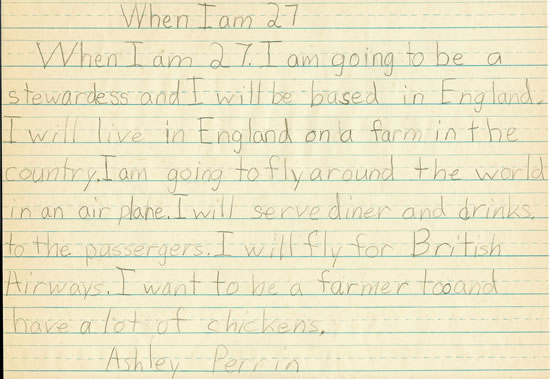 When I am 27
When I am 27. I am going to be a
stewardess and I will be based in England.
I will live in England on a farm in the
country. I am going to fly around the world
in an air plane. I will serve diner and drinks.
to the passergers. I will fly for British
Airways. I want to be a farmer too and
have a lot of chickens.
Ashley Perrin